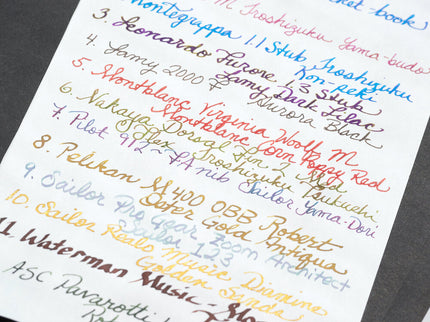 M Iroshizuku Yama-budo
Montegrappa 1.1 Stub Iroshizuku
Kon-peki
3. Leonardo Furore 1.3 Stub
Lamy Dark Lilac
4. Lamy 2000 F Aurora Black
5. Montblanc Virginia Woolf M
Montblanc Corn Poppy Red
6. Nakaya Dorsal Fin 2
Iroshizuku Tsukushi
7. Pilot 912 ~ FA nib Sailor Yama-Dori
8. Pelikan M400 OBB Robert
Oster Gold Antiqua
9. Sailor Pro Gear Zoom Architect
Sailor 123
10. Sailor Realo Music Diamine
Golden Sands
11. Waterman Music - Mo
ASC Pavarotti